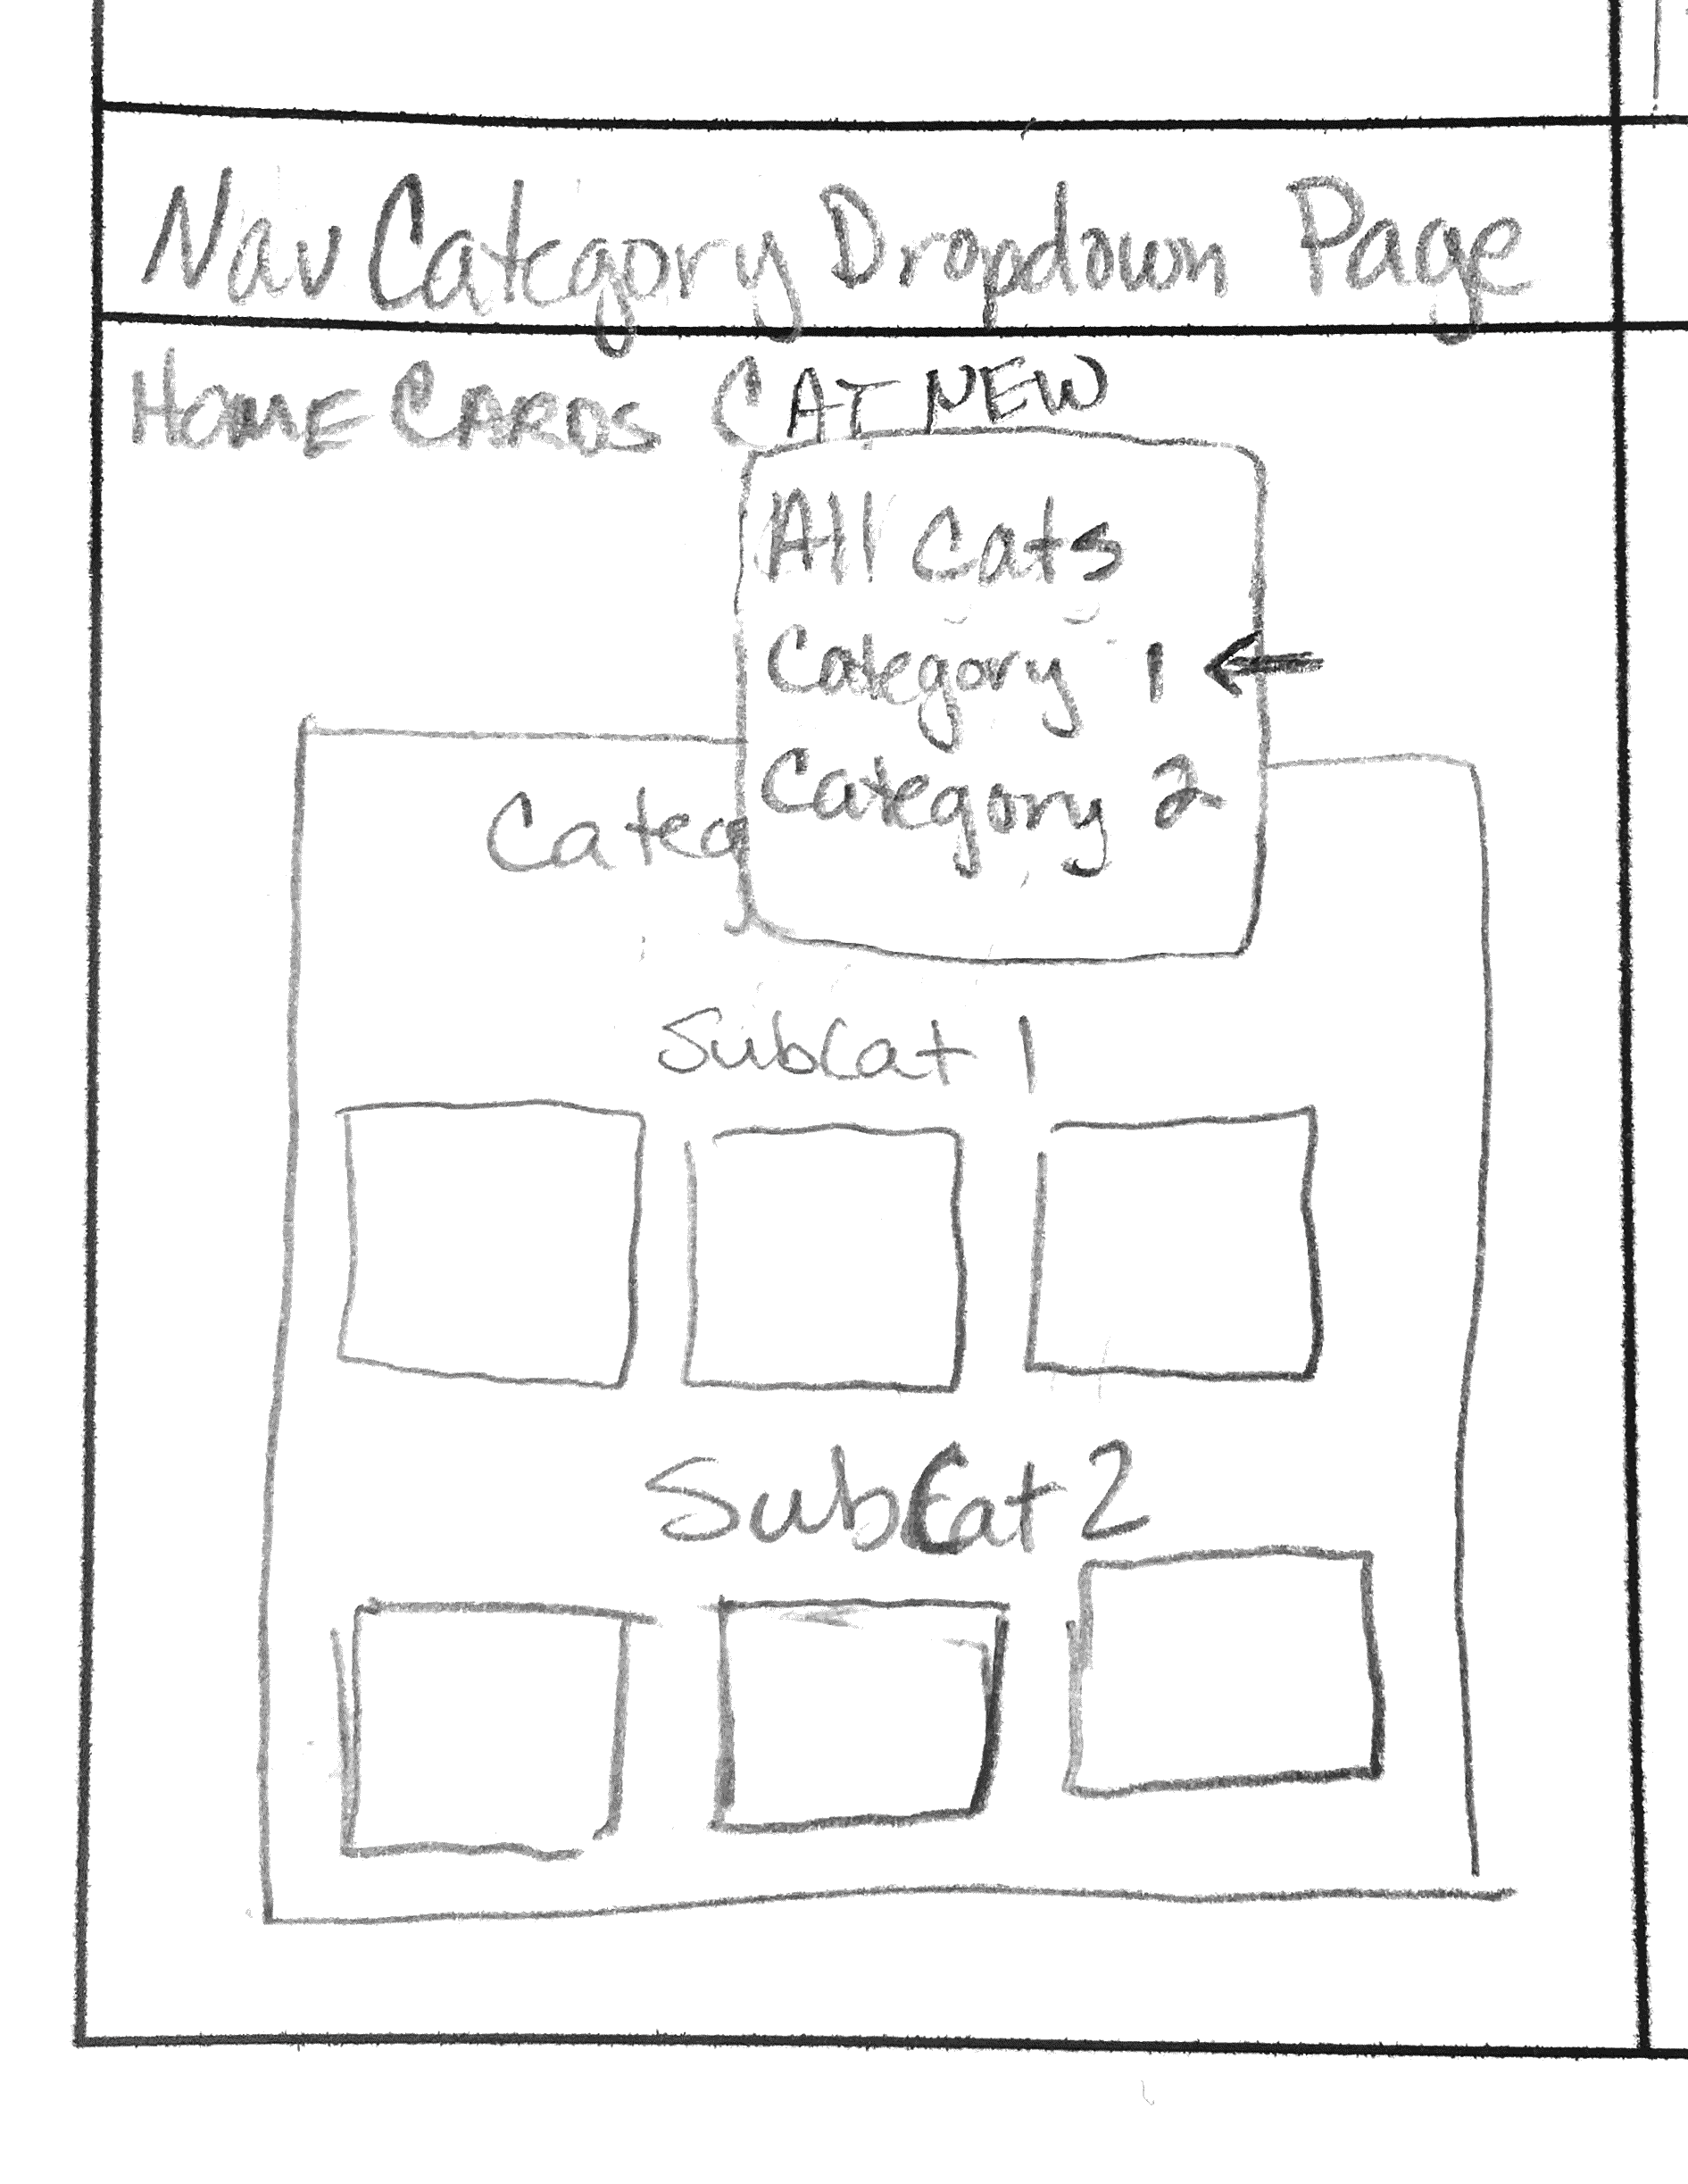 Nav Category Dropdown Page
HOME CARDS CAT NEW
All Cats
Category 1
Category 2
Categ
SubCat 1
SubCat 2